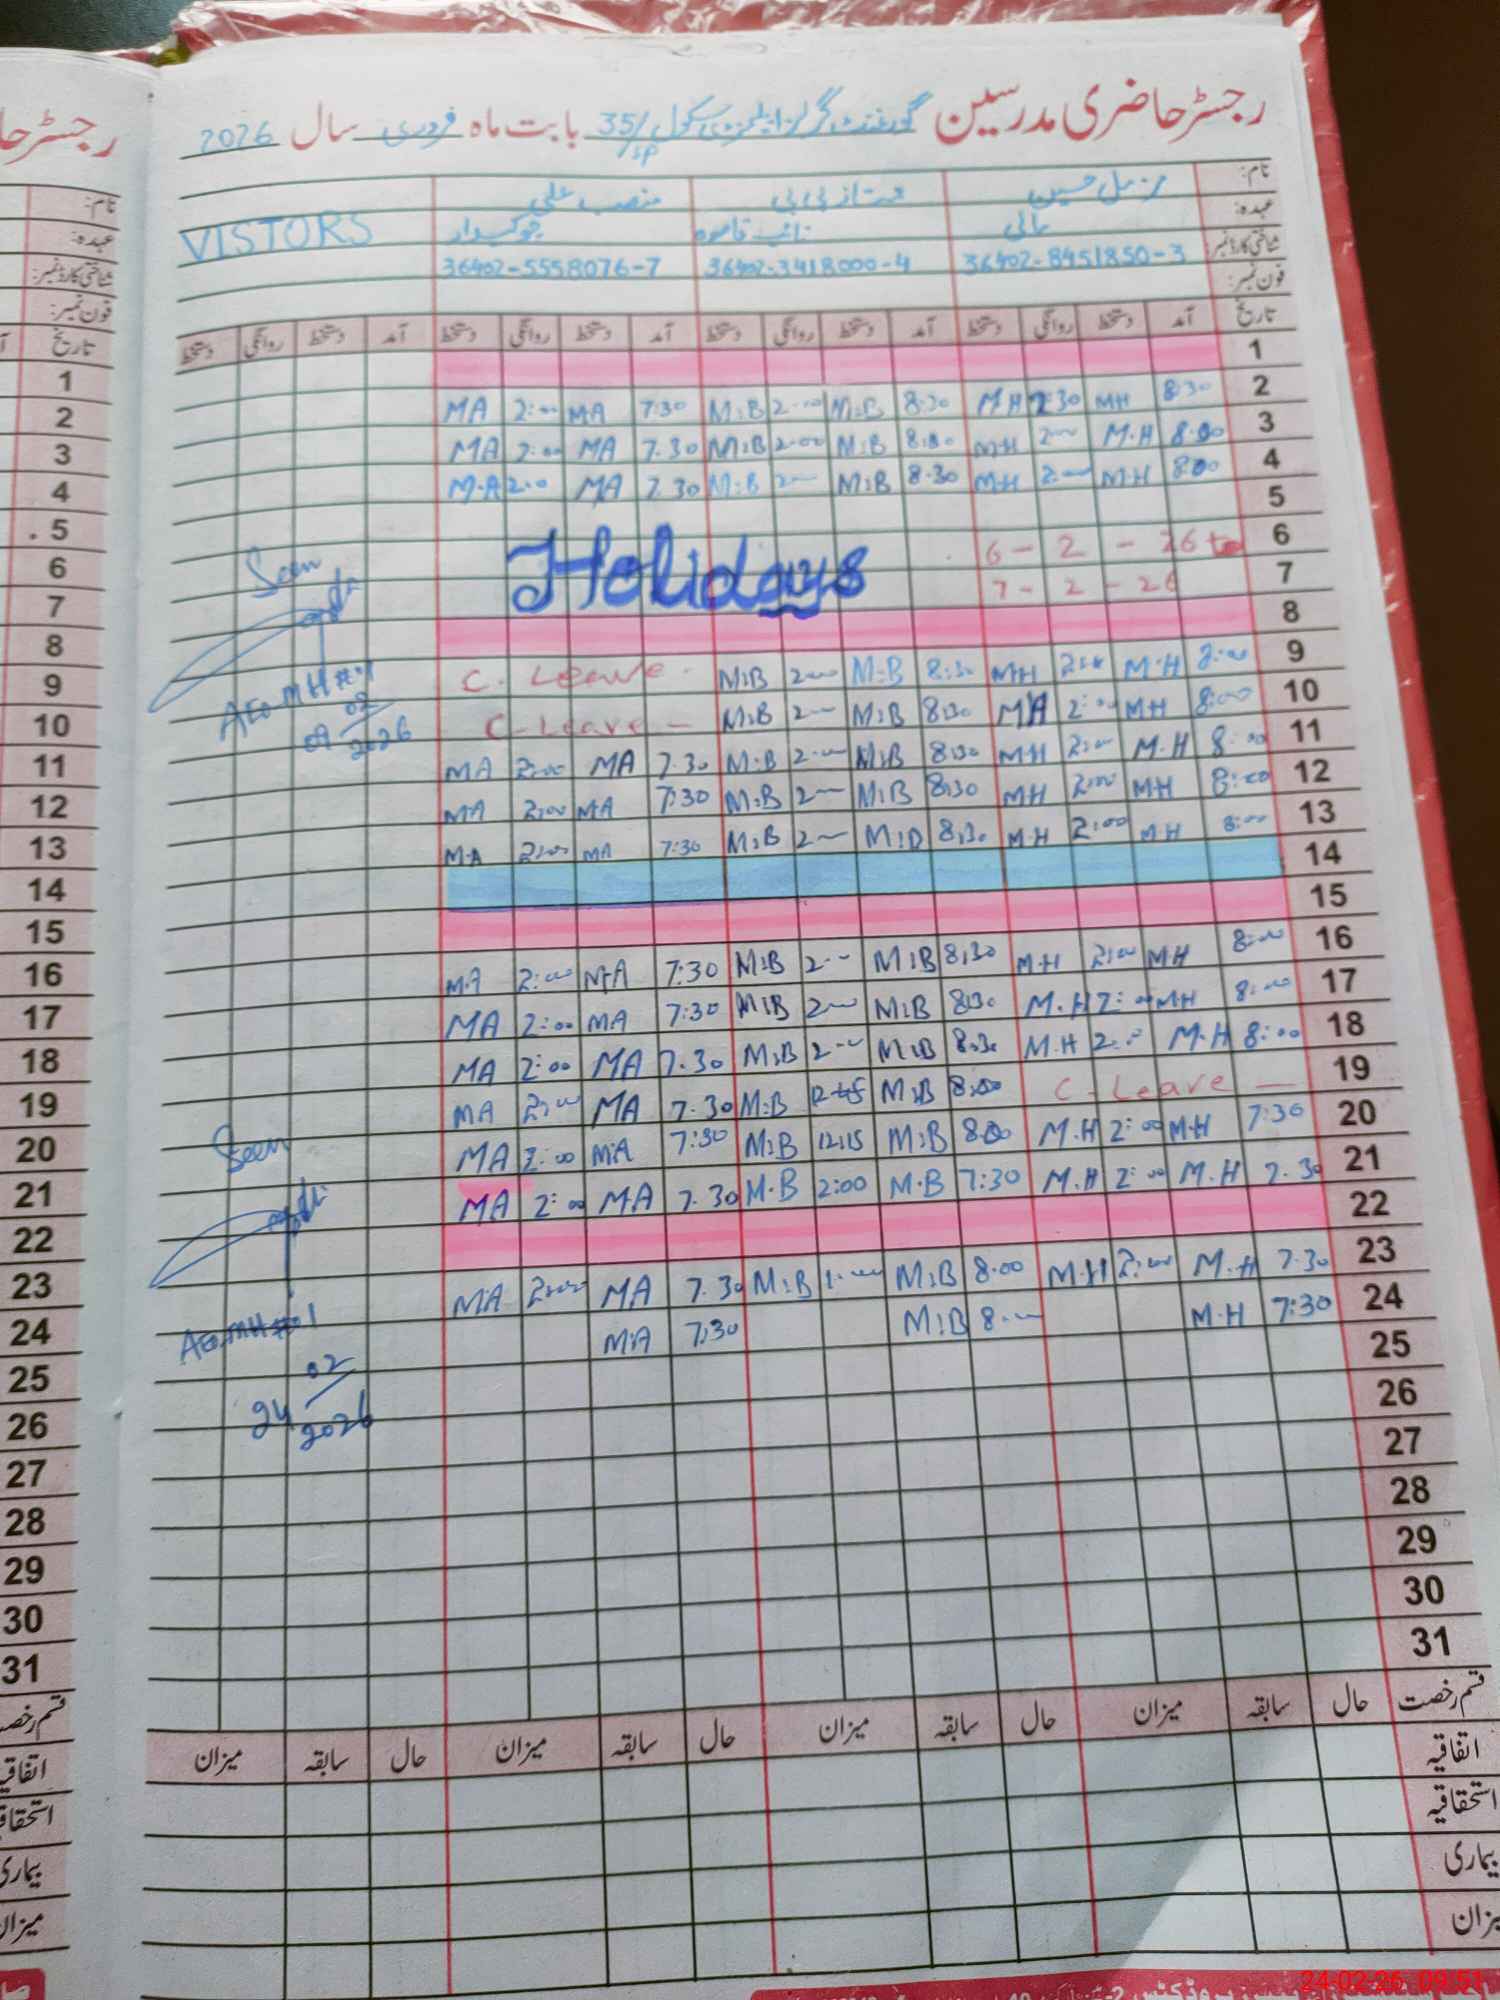 رجسٹر حاضری مدرسین گورنمنٹ گرلز ایلیمنٹری سکول 35/SP بابت ماہ فروری سال 2026
نام: مزمل حسین ممتاز بی بی منصب علی
عہدہ: مالی نائب قاصدہ چوکیدار VISTORS
شناختی کارڈ نمبر: 36402-8451850-3 36402-3418000-4 36402-5558076-7
فون نمبر:
تاریخ آمد دستخط روانگی دستخط آمد دستخط روانگی دستخط آمد دستخط روانگی دستخط آمد دستخط روانگی دستخط
1
MA 2:00 MA 7:30 M:B 2:00 M:B 8:30 M.H 2:30 MH 8:30 2
MA 2:00 MA 7.30 M:B 2:00 M:B 8:00 M.H 2:00 M.H 8:00 3
M.A 2:0 MA 7.30 M:B 2:00 M:B 8.30 M.H 2:00 M.H 8:00 4
5
Holidays 6-2-26 to 6
7-2-26 7
8
C. Leave - M:B 2:00 M:B 8:30 MH 2:00 M.H 8:00 9
C-Leave - M:B 2:00 M:B 8:30 MA 2:00 MH 8:00 10
MA 2:00 MA 7.30 M:B 2:00 M:B 8:30 MH 2:00 M.H 8:00 11
MA 2:00 MA 7:30 M:B 2:00 M:B 8:30 MH 2:00 MH 8:00 12
M.A 2:00 MA 7:30 M:B 2:00 M:B 8:30 M.H 2:00 M.H 8:00 13
14
15
M.A 2:00 M.A 7:30 M:B 2:00 M:B 8:30 M.H 2:00 M.H 8:00 16
MA 2:00 MA 7:30 M:B 2:00 M:B 8:30 M.H 2:00 MH 8:00 17
MA 2:00 MA 7.30 M:B 2:00 M:B 8:30 M.H 2:00 M.H 8:00 18
MA 2:00 MA 7.30 M:B M:B 8:00 C-Leave - 19
MA 2:00 M:A 7:30 M:B 12:15 M:B 8:00 M.H 2:00 M.H 7:30 20
MA 2:00 M.A 7.30 M.B 2:00 M.B 7:30 M.H 2:00 M.H 7.30 21
22
M:A 2:00 MA 7.30 M:B 1:00 M:B 8:00 M.H 2:00 M.H 7.30 23
M:A 7:30 M:B 8:00 M.H 7:30 24
25
26
27
28
29
30
31
Seen
AEO.MH#01
09/02/2026
Seen
AEO.MH#01
24/02/2026
قسم رخصت حال سابقہ میزان حال سابقہ میزان حال سابقہ میزان حال سابقہ میزان
اتفاقیہ
استحقاقیہ
بیماری
میزان
رجسٹر حا
نام:
عہدہ:
شناختی کارڈ نمبر:
فون نمبر:
تاریخ
1
2
3
4
5
6
7
8
9
10
11
12
13
14
15
16
17
18
19
20
21
22
23
24
25
26
27
28
29
30
31
قسم رخصت
اتفاقیہ
استحقاقیہ
بیماری
میزان
24-02-26 09:51